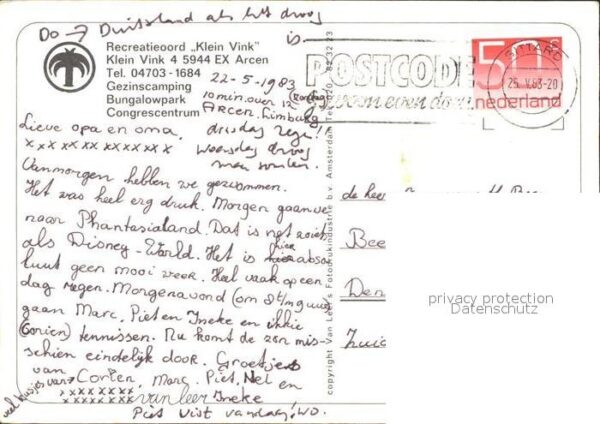 Do → Duitsland als het droog
is
Recreatieoord „Klein Vink"
Klein Vink 4 5944 EX Arcen
Tel. 04703 - 1684
Gezinscamping
Bungalowpark
Congrescentrum
22-5-1983
10 min. over 12
Arcen Limburg
dinsdag regen!!
woensdag droog
maar
Lieve opa en oma,
x x x x x x x x x x x x
Vanmorgen hebben we gezwommen.
Het was heel erg druk. Morgen gaan we
naar Phantasialand. Dat is net zoiets
als Disney-World. Het is hier abso-
luut geen mooi weer. Heel vaak op een
dag regen. Morgenavond (om 8 uur)
gaan Marc, Piet en Ineke en ikke
(Corien) tennissen. Nu komt de zon mis-
schien eindelijk door. Groetjes
van Corien, Marc, Piet, Nel en
veel kusjes van xxxxxxxx van Leer Ineke
Piet vist vandaag! WO.
copyright Van Leer's Fotodrukindustrie b.v. Amsterdam Tel. 020 - 82 32 23
POSTCODE
even
SITTARD
25.V.83-20
50c
nederland
de heer
Bee
Den
Zuid
privacy protection
Datenschutz